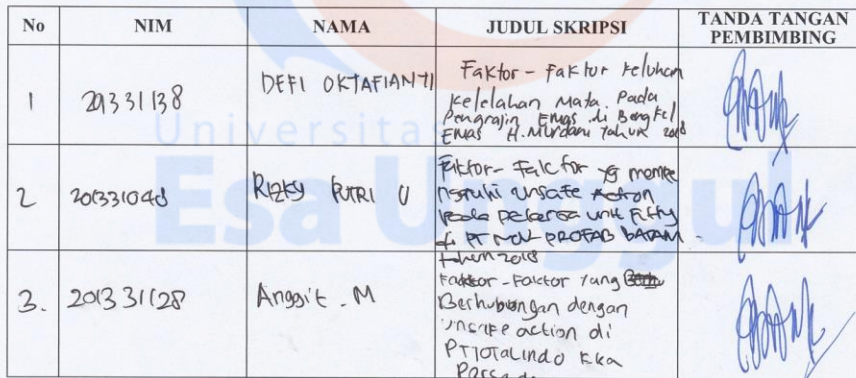 No NIM NAMA JUDUL SKRIPSI TANDA TANGAN PEMBIMBING
1 201331138 DEFI OKTAFIANTI Faktor - Faktor Keluhan
Kelelahan Mata Pada
Pengrajin Emas di Bengkel
Emas H. Murdani Tahun 2018
2 201331048 RIZKY PUTRI U Faktor - Faktor yg mempe
ngaruhi unsafe Action
pada pekerja unit Fitty
di PT PROFAB BATAM
tahun 2018
3.201331128 Anggit . M Faktor - Faktor Yang
Berhubungan dengan
unsafe action di
PT TOTALINDO Eka
Persada
Universitas
Esa Unggul